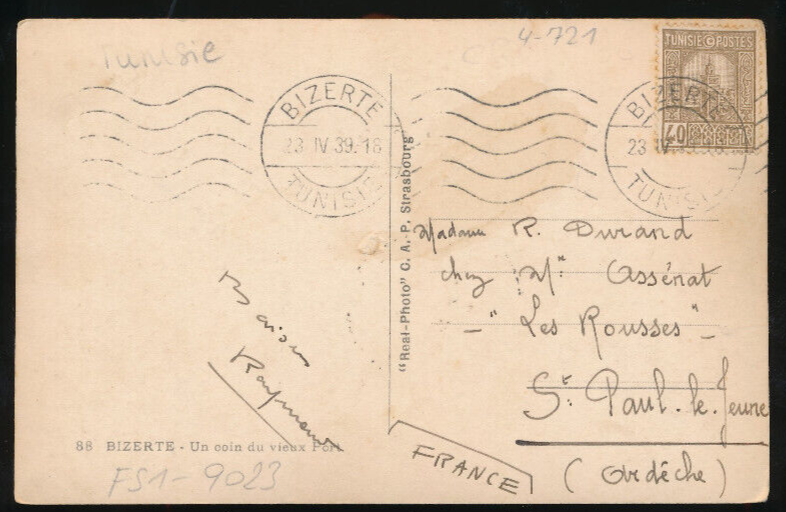 Tunisie
4-721
TUNISIE POSTES
40
BIZERTE
23 IV 39.18
TUNISIE
BIZERTE
23 IV
TUNISIE
Madame R. Durand
chez Mr Assénat
"Les Rousses"
St. Paul-le-Jeune
(Ardèche)
FRANCE
Baisers
Raymond
"Real-Photo" C. A.-P. Strasbourg
88 BIZERTE - Un coin du vieux Port
FS1-9023